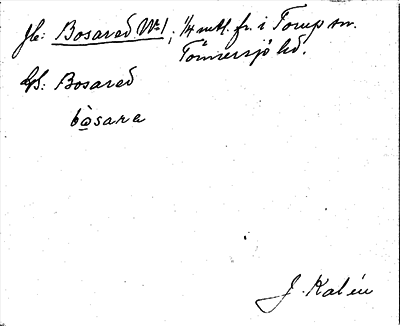 Jb: Bosared No 1, 1/4 mtl. fr. i Torup sn.
Tönnersjö hd.
Upp: Bosared
bòsara
J. Kalén